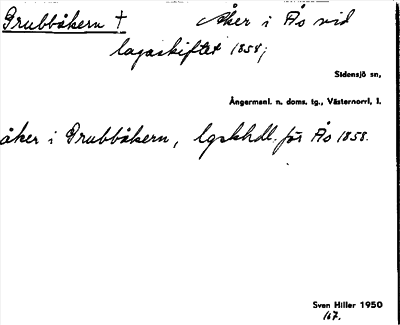 Grubbåkern † Åker i Ås vid
lagaskiftet 1858;
Sidensjö sn,
Ångermanl. n. doms. tg., Västernorrl, l.
åker i Grubbåkern, lgskhdl. för Ås 1858.
Sven Hiller 1950
167.